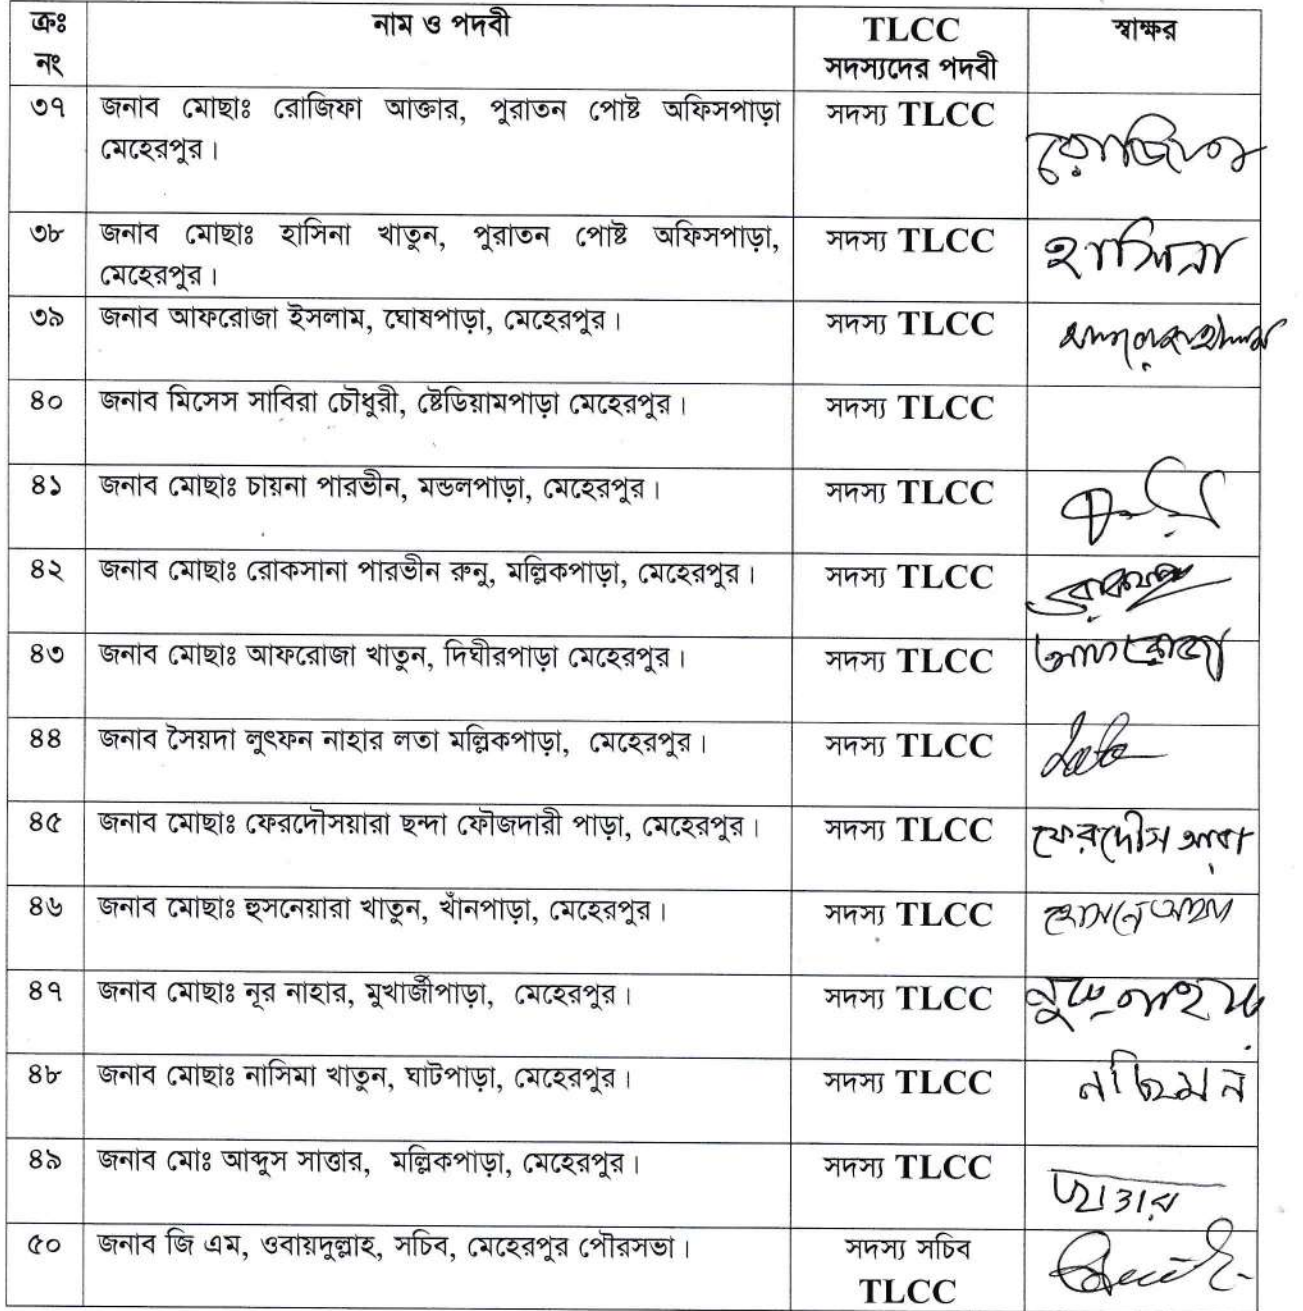 ক্রঃ নং নাম ও পদবী TLCC সদস্যদের পদবী স্বাক্ষর
৩৭ জনাব মোছাঃ রোজিফা আক্তার, পুরাতন পোষ্ট অফিসপাড়া মেহেরপুর। সদস্য TLCC রোজিফা
৩৮ জনাব মোছাঃ হাসিনা খাতুন, পুরাতন পোষ্ট অফিসপাড়া, মেহেরপুর। সদস্য TLCC হাসিনা
৩৯ জনাব আফরোজা ইসলাম, ঘোষপাড়া, মেহেরপুর। সদস্য TLCC
৪০ জনাব মিসেস সাবিরা চৌধুরী, ষ্টেডিয়ামপাড়া মেহেরপুর। সদস্য TLCC
৪১ জনাব মোছাঃ চায়না পারভীন, মন্ডলপাড়া, মেহেরপুর। সদস্য TLCC
৪২ জনাব মোছাঃ রোকসানা পারভীন রুনু, মল্লিকপাড়া, মেহেরপুর। সদস্য TLCC
৪৩ জনাব মোছাঃ আফরোজা খাতুন, দিঘীরপাড়া মেহেরপুর। সদস্য TLCC আফরোজা
৪৪ জনাব সৈয়দা লুৎফন নাহার লতা মল্লিকপাড়া, মেহেরপুর। সদস্য TLCC Lata
৪৫ জনাব মোছাঃ ফেরদৌসয়ারা ছন্দা ফৌজদারী পাড়া, মেহেরপুর। সদস্য TLCC ফেরদৌস আরা
৪৬ জনাব মোছাঃ হুসনেয়ারা খাতুন, খাঁনপাড়া, মেহেরপুর। সদস্য TLCC
৪৭ জনাব মোছাঃ নূর নাহার, মুখার্জীপাড়া, মেহেরপুর। সদস্য TLCC
৪৮ জনাব মোছাঃ নাসিমা খাতুন, ঘাটপাড়া, মেহেরপুর। সদস্য TLCC নাছিমন
৪৯ জনাব মোঃ আব্দুস সাত্তার, মল্লিকপাড়া, মেহেরপুর। সদস্য TLCC ছাত্তার
৫০ জনাব জি এম, ওবায়দুল্লাহ, সচিব, মেহেরপুর পৌরসভা। সদস্য সচিব TLCC